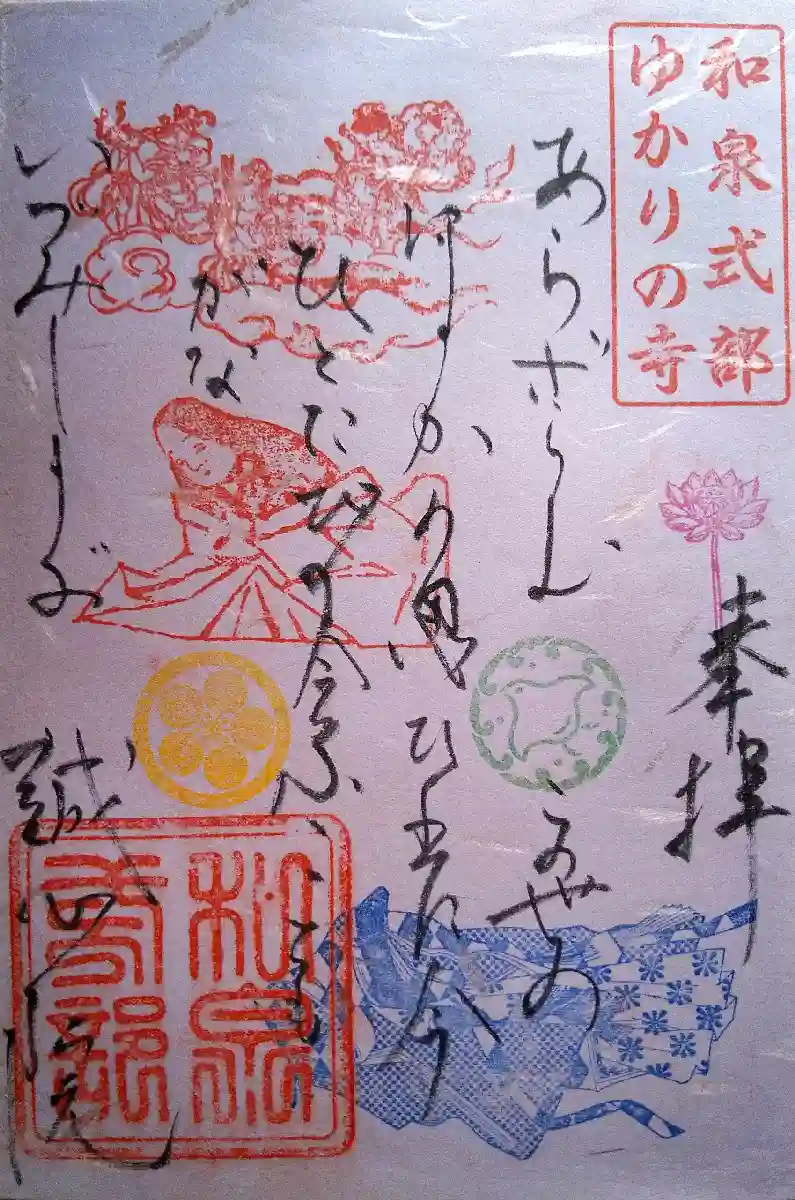 和泉式部
ゆかりの寺
奉拝
あらざらむ この世の
ほかの思ひ出に今
ひとたびの会ふことも
がな
いづみしきぶ
誠心院
和泉
式部